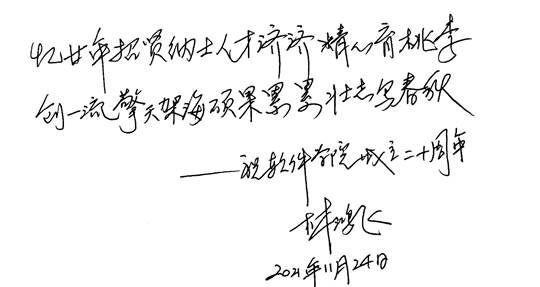 忆廿年招贤纳士人才济济精心育桃李
创一流擎天架海硕果累累壮志写春秋
——祝软件学院成立二十周年
林鸿飞
2021年11月24日